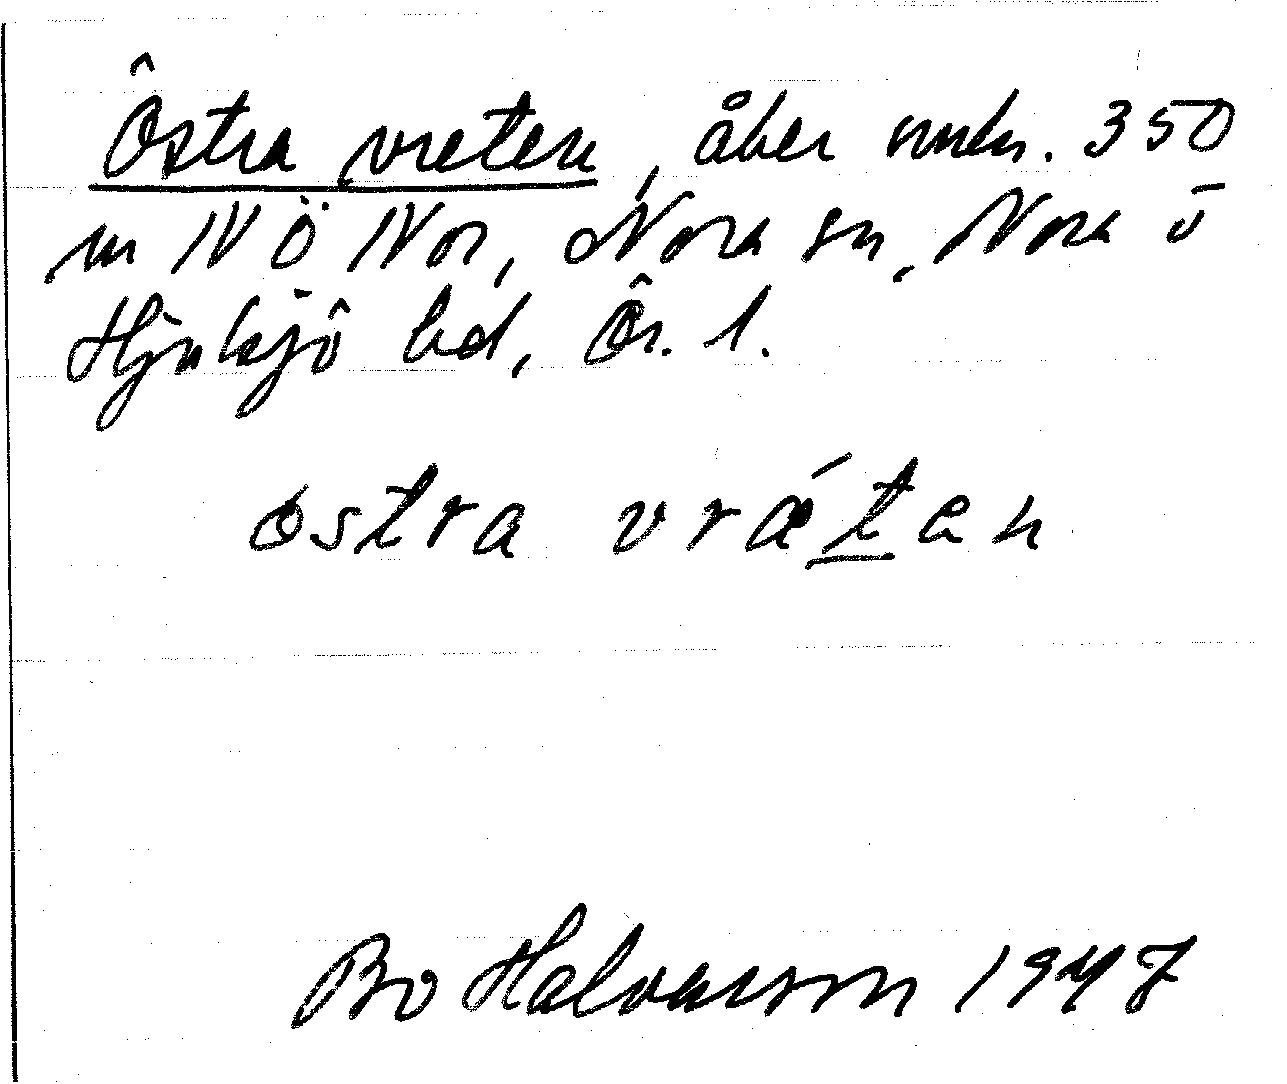 Östra vreten, åker omkr. 350
m NÖ Nor, Nora sn, Nora o
Hjulsjö bd, Ör. l.
östra vrǽten
Bo Halvarson 1947